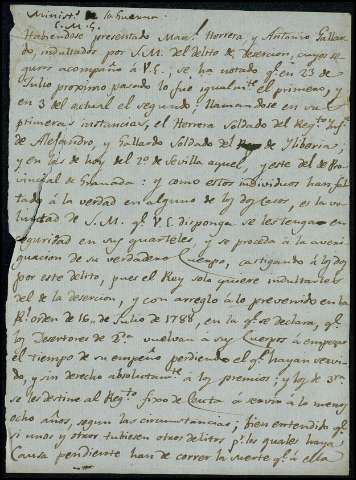 Minist.º de la Guerra
E. M. S.
Habiendose presentado Man.l Herrera y Antonio Gallar
do, indultados por S.M. del delito de desercion, cuyos se
guros acompaño á V.E.; se ha notado q.e en 23 de
Julio proximo pasado lo fue igualm.te el primero, y
en 3 del actual el segundo; llamandose en sus
primeras instancias, el Herrera Soldado del Reg.to Inf.a
de Alejandro, y Gallardo Soldado del de Ybéria;
y en las de hoy del 2º de Sevilla aquel, y este del de Pro
vincial de Granada: y como estos individuos han fal
tado á la verdad en alguno de los dos casos, es la vo
luntad de S.M. q.e V.E. disponga se les tenga en
seguridad en sus quarteles, y se proceda á la averi
guacion de su verdadero Cuerpo, castigando á los dos
por este delito, pues el Rey solo quiere indultarles
del de la desercion, y con arreglo á lo prevenido en la
R.l orden de 16,, de Julio de 1788, en la q.e se declara, q.e
los Desertores de 2.a vuelvan á sus Cuerpos á empezar
el tiempo de su empeño perdiendo el q.e hayan servi
do, y sin derecho absolutam.te á los premios; y los de 3.a
se les destine al Reg.to fixo de Ceuta á servir á lo menos
ocho años, segun las circunstancias; bien entendido q.e
si unos y otros tubiesen otros delitos p.r los quales haya
Causa pendiente han de correr la suerte q.e á ella